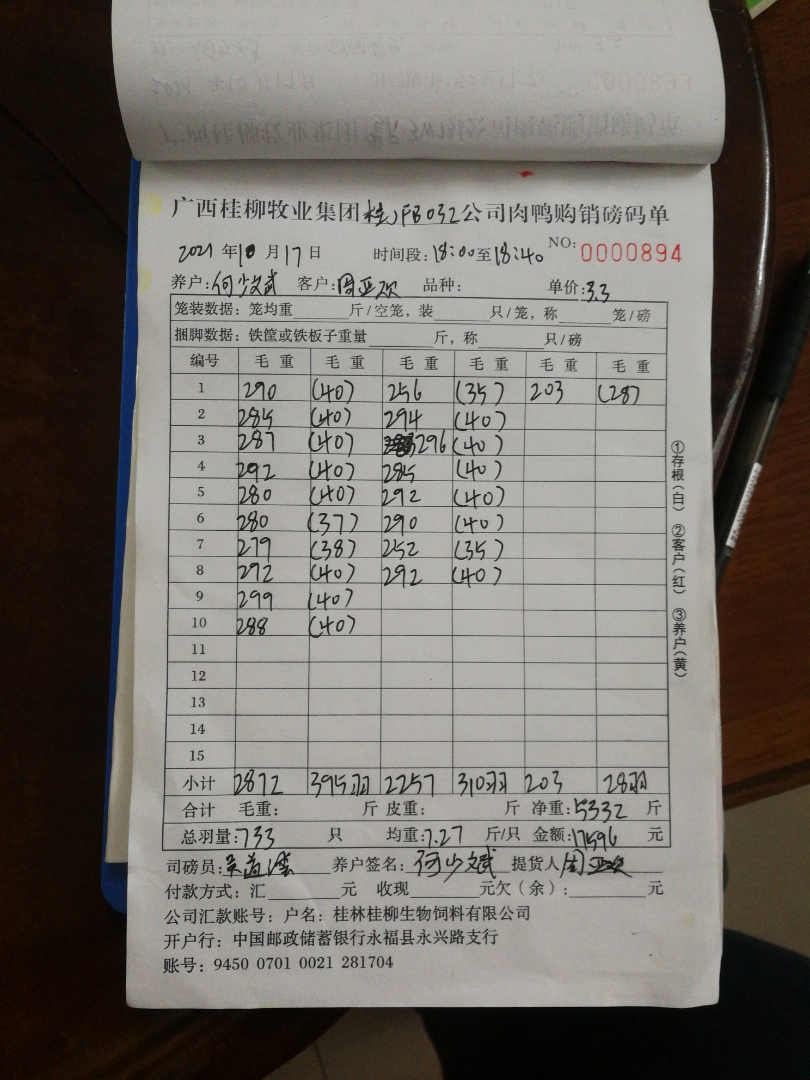 广西桂柳牧业集团桂FB032公司肉鸭购销磅码单
2021年10月17日 时间段:18:00至18:40 NO:0000894
养户:何少斌 客户:周亚欢 品种: 单价:3.3
笼装数据:笼均重 斤/空笼,装 只/笼,称 笼/磅
捆脚数据:铁筐或铁板子重量 斤,称 只/磅
编号 毛重 毛重 毛重 毛重 毛重 毛重
1 290 (40) 256 (35) 203 (28)
2 285 (40) 294 (40)
3 287 (40) 296 (40)
4 292 (40) 285 (40)
5 280 (40) 292 (40)
6 280 (37) 290 (40)
7 279 (38) 252 (35)
8 292 (40) 292 (40)
9 299 (40)
10 288 (40)
11
12
13
14
15
小计 2872 395羽 2257 310羽 203 28羽
合计 毛重: 斤 皮重: 斤 净重:5332 斤
总羽量:733 只 均重:7.27 斤/只 金额:17596 元
司磅员: 养户签名:何少斌 提货人周亚欢
付款方式:汇 元 收现 元欠(余): 元
公司汇款账号:户名:桂林桂柳生物饲料有限公司
开户行:中国邮政储蓄银行永福县永兴路支行
账号:9450 0701 0021 281704
①存根(白) ②客户(红) ③养户(黄)